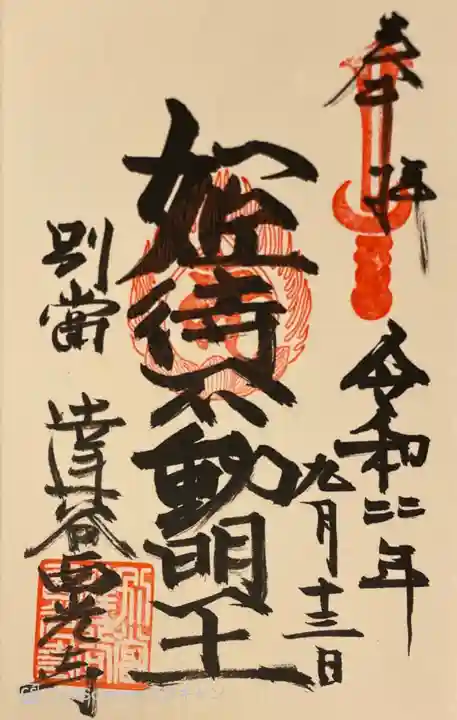 奉拝
令和二年
九月十三日
姫待不動明王
別當
達谷西光寺